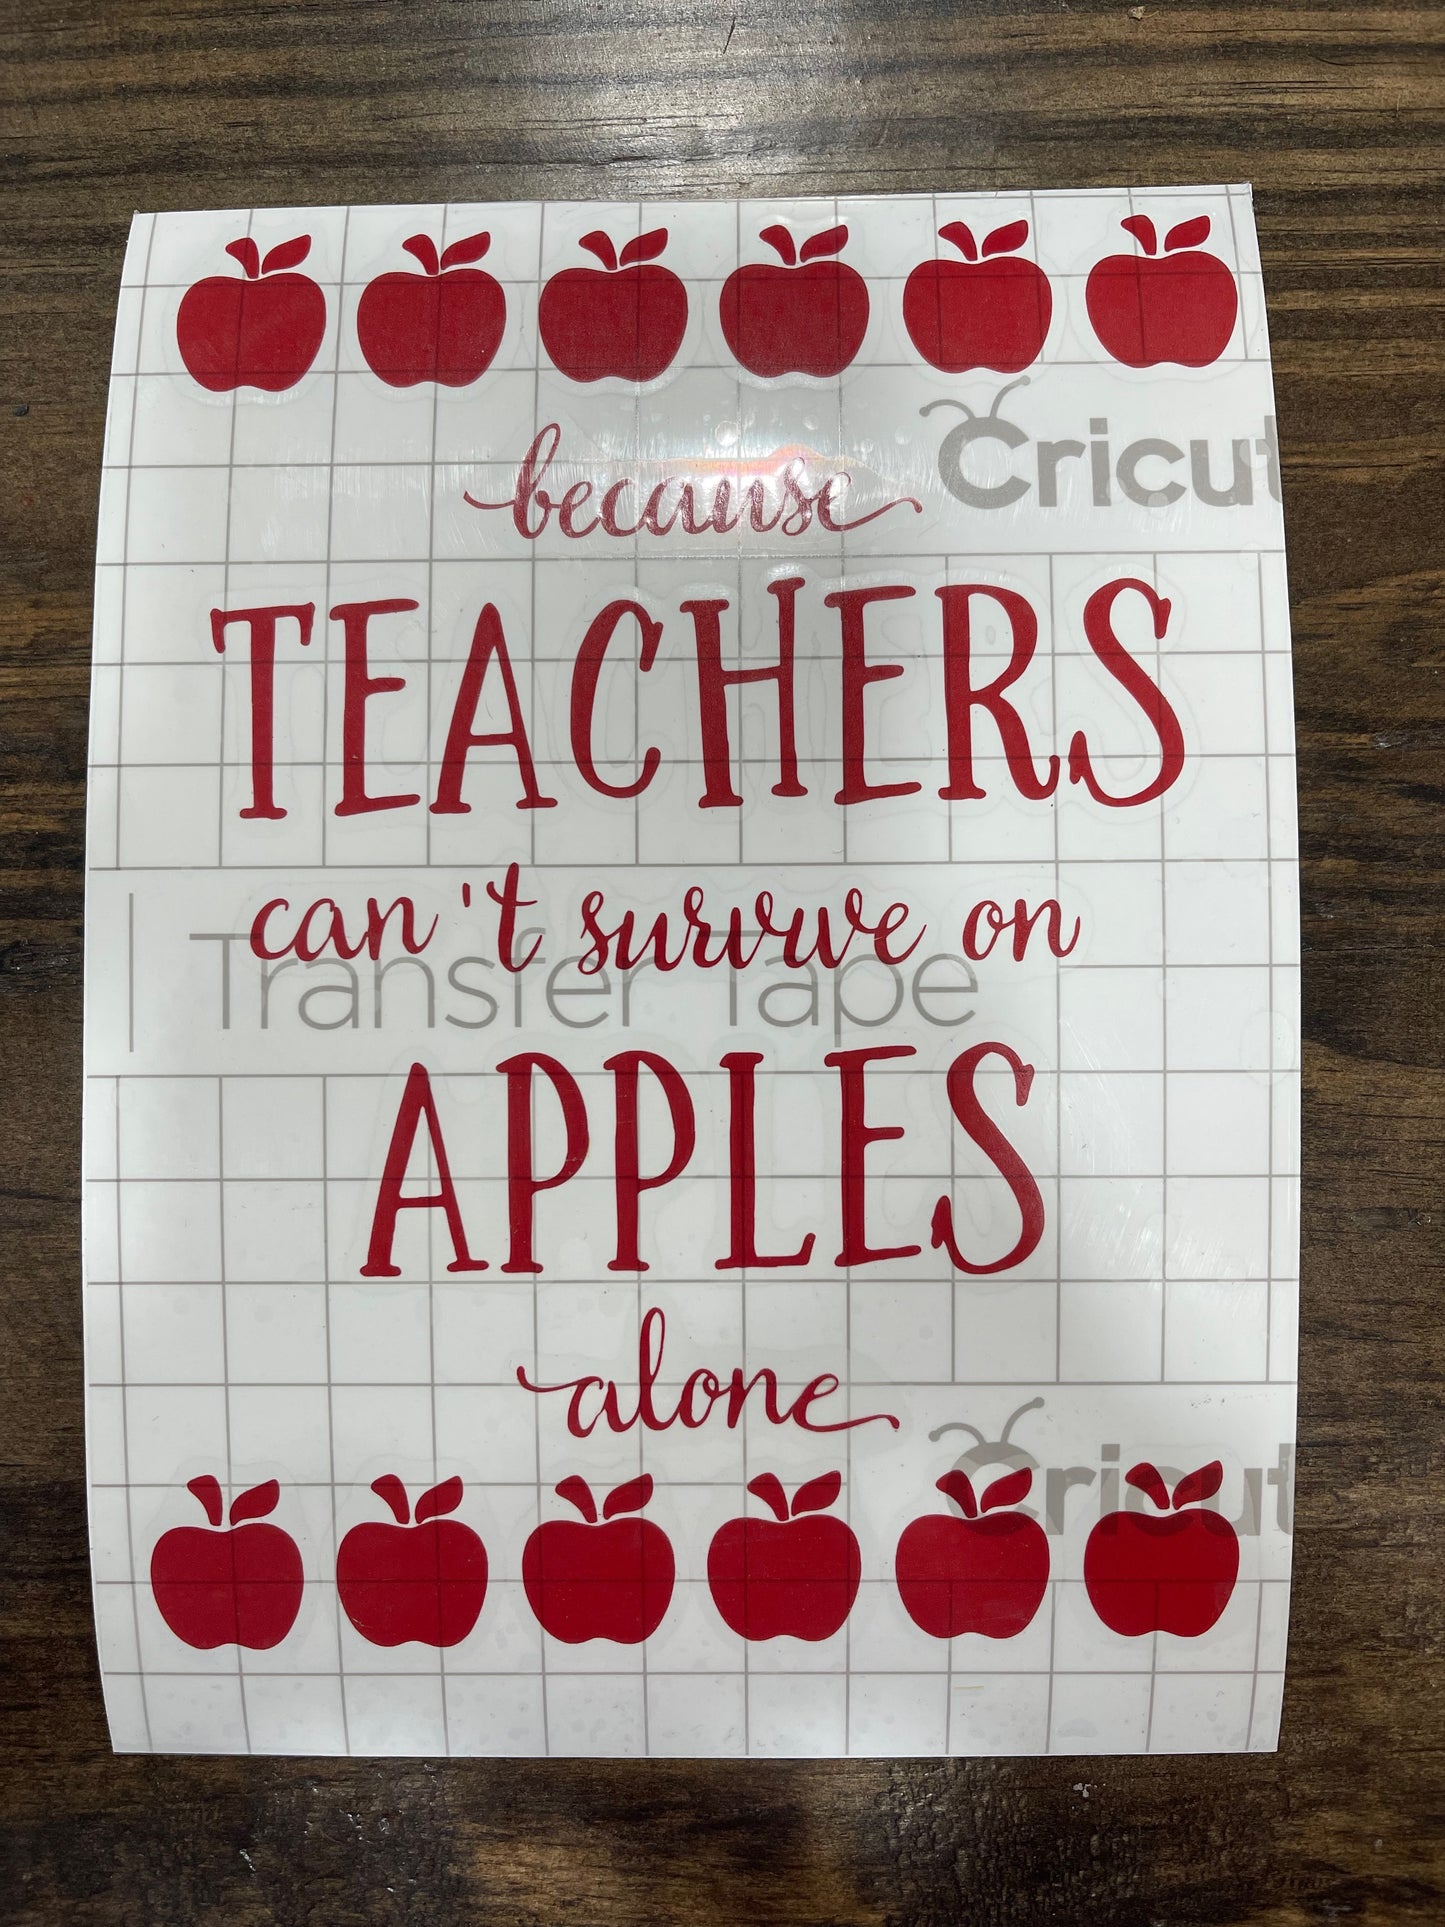 Cricut
because
TEACHERS
can't survive on
Transfer Tape
APPLES
alone
Cricut